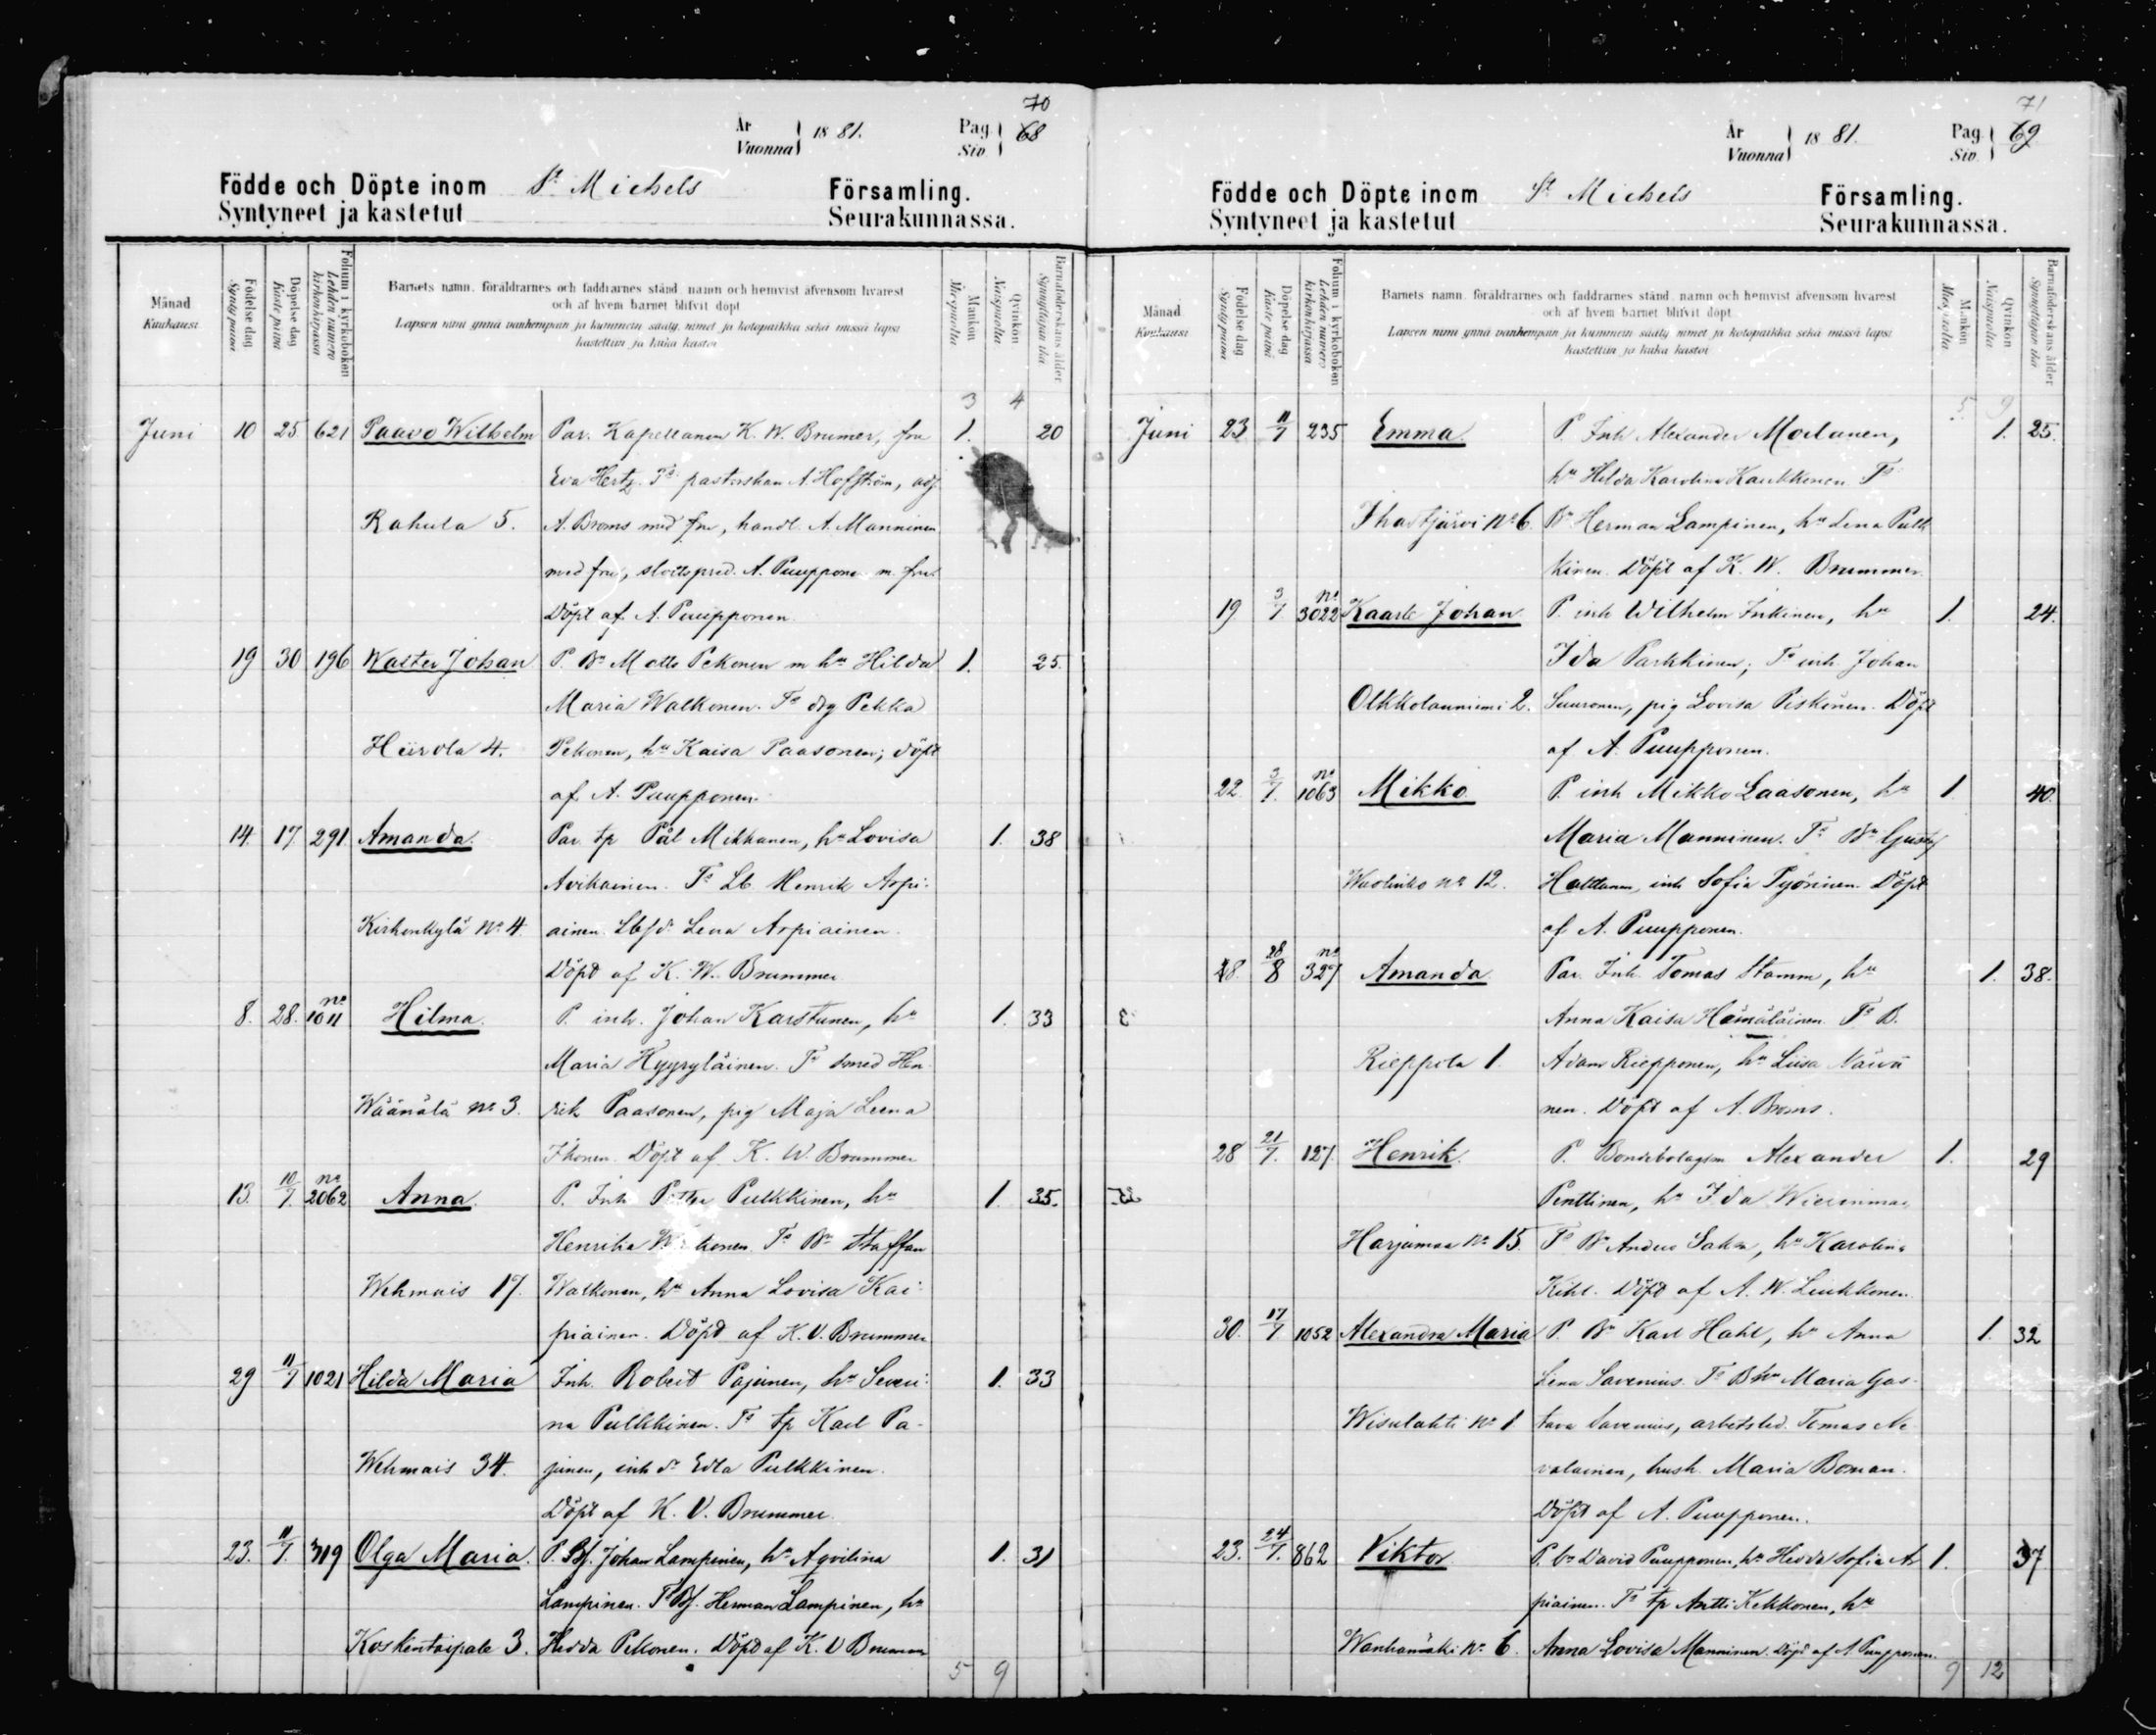 70
År
Vuonna 1881.
Pag. 68
Siv.
Födde och Döpte inom St Michels Församling.
Syntyneet ja kastetut Seurakunnassa.
Månad
Kuukausi
Födelse dag
Synty päivä
Döpelse dag
Kaste päivä
Folium i kyrkoboken
Lehden numero kirkonkirjassa
Barnets namn, föräldrarnes och faddrarnes stånd, namn och hemvist äfvensom hvarest
och af hvem barnet blifvit döpt
Lapsen nimi ynnä vanhempain ja kummein sääty, nimet ja kotopaikka sekä missä lapsi
kastettiin ja kuka kastoi
Mankön
Miespuolia
Qvinkön
Naispuolia
Barnaföderskans ålder
Synnyttäjän ikä
3 4
Juni 10 25 621 Paavo Wilhelm Par. Kapellanen K. W. Brumer, fru 1. 20
Eva Hertz. Fs pastorskan A. Hofström, adj.
Rahula 5. A. Broms med fru, handl. A. Manninen
med fru, slottspred. A. Puupponen m. fru.
Döpt af A. Puupponen
19 30 196 Walter Johan P. Bn Matts Pekonen m hu Hilda 1. 25.
Maria Walkonen. Fs drg Pekka
Hiirola 4. Pekonen, hu Kaisa Paasonen; döpt
af A. Puupponen.
14. 17 291 Amanda. Par. tp Pål Mikkanen, hu Lovisa 1. 38
Avikainen. Fs Lb. Henrik Arpi-
Kirkonkylä No 4. ainen. Lena Arpiainen.
Döpt af K. W. Brummer
8. 28. no 1011 Hilma. P. inh. Johan Karstunen, hu 1. 33
Maria Hyyryläinen. Fs smed Hen
Wäänälä no 3. rik Paasonen, pig Maja Leena
Ihonen. Döpt af K. W. Brummer
13. 10/7. no 2062 Anna. P. Inh Petter Pulkkinen, hu 1. 35.
Henrika Fs Bn Staffan
Wehmais 17. Walkonen, hu Anna Lovisa Kai-
piainen. Döpt af K. V. Brummer
29 11/7 1021 Hilda Maria Inh. Robert Pajunen, hu Severi- 1. 33
na Pulkkinen. Fs tp Karl Pa-
Wehmais 34. junen, inh dr Edla Pulkkinen.
Döpt af K. V. Brummer.
23. 11/7. 319 Olga Maria. P. Bf. Johan Lampinen, hu Aqvilina 1. 31
Lampinen. Fs Bf. Herman Lampinen, hu
Koskentaipale 3. Hedda Pekonen. Döpt af K. V Brummer
5 9
71
År
Vuonna 1881.
Pag. 69
Siv.
Födde och Döpte inom St Michels Församling.
Syntyneet ja kastetut Seurakunnassa.
Månad
Kuukausi
Födelse dag
Synty päivä
Döpelse dag
Kaste päivä
Folium i kyrkoboken
Lehden numero kirkonkirjassa
Barnets namn, föräldrarnes och faddrarnes stånd, namn och hemvist äfvensom hvarest
och af hvem barnet blifvit döpt
Lapsen nimi ynnä vanhempain ja kummein sääty, nimet ja kotopaikka sekä missä lapsi
kastettiin ja kuka kastoi
Mankön
Miespuolia
Qvinkön
Naispuolia
Barnaföderskans ålder
Synnyttäjän ikä
5 9
Juni 23 11/7 235 Emma. P. Inh Alexander Moilanen, 1. 25.
hu Hilda Karolina Kaukkonen. Fs
Ihastjärvi No 6. Bn Herman Lampinen, hu Lena Pulk
kinen. Döpt af K. W. Brummer
19 3/7 no 3022 Kaarle Johan P. inh Wilhelm Inkinen, hu 1. 24.
Ida Parkkinen; Fs inh. Johan
Olkkolanniemi 2. Suuronen, pig Lovisa Piskonen. Döpt
af A. Puupponen.
22. 3/7. no 1063 Mikko P. inh Mikko Laasonen, hu 1 40.
Maria Manninen. Fs Bn Gustaf
Wuolinko no 12. Halttunen, inh Sofia Pyörinen. Döpt
af A. Puupponen.
28. 28/8 no 327 Amanda Par. Inh. Tomas Stamm, hu 1. 38.
Anna Kaisa Hämäläinen. Fs B.
Rieppola 1. Adam Riepponen, hu Liisa Närvä
nen. Döpt af A. Broms.
28 21/7. 127 Henrik. P. Bondebolagsm Alexander 1. 29
Penttinen, hu Ida Wierimaa,
Harjumaa No 15. Fs Bn Anders hu Karolina
Kihl. Döpt af A. W. Liukkonen.
30. 17/7 1052 Alexandra Maria P. Bn Karl Hahl, hu Anna 1. 32
Lena Savenius. Fs Bhu Maria Gus-
Wisulahti No 1 tava Savenius, arbetsled. Tomas Ne
valainen, hush. Maria Boman.
Döpt af A. Puupponen.
23. 24/7. 862 Viktor P. bn David Puupponen, hu Hedda Sofia Ar 1. 37
piainen. Fs tp Antti Kekkonen, hu
Wanhamäki No 6. Anna Lovisa Manninen. Döpt af A. Puupponen.
9 12